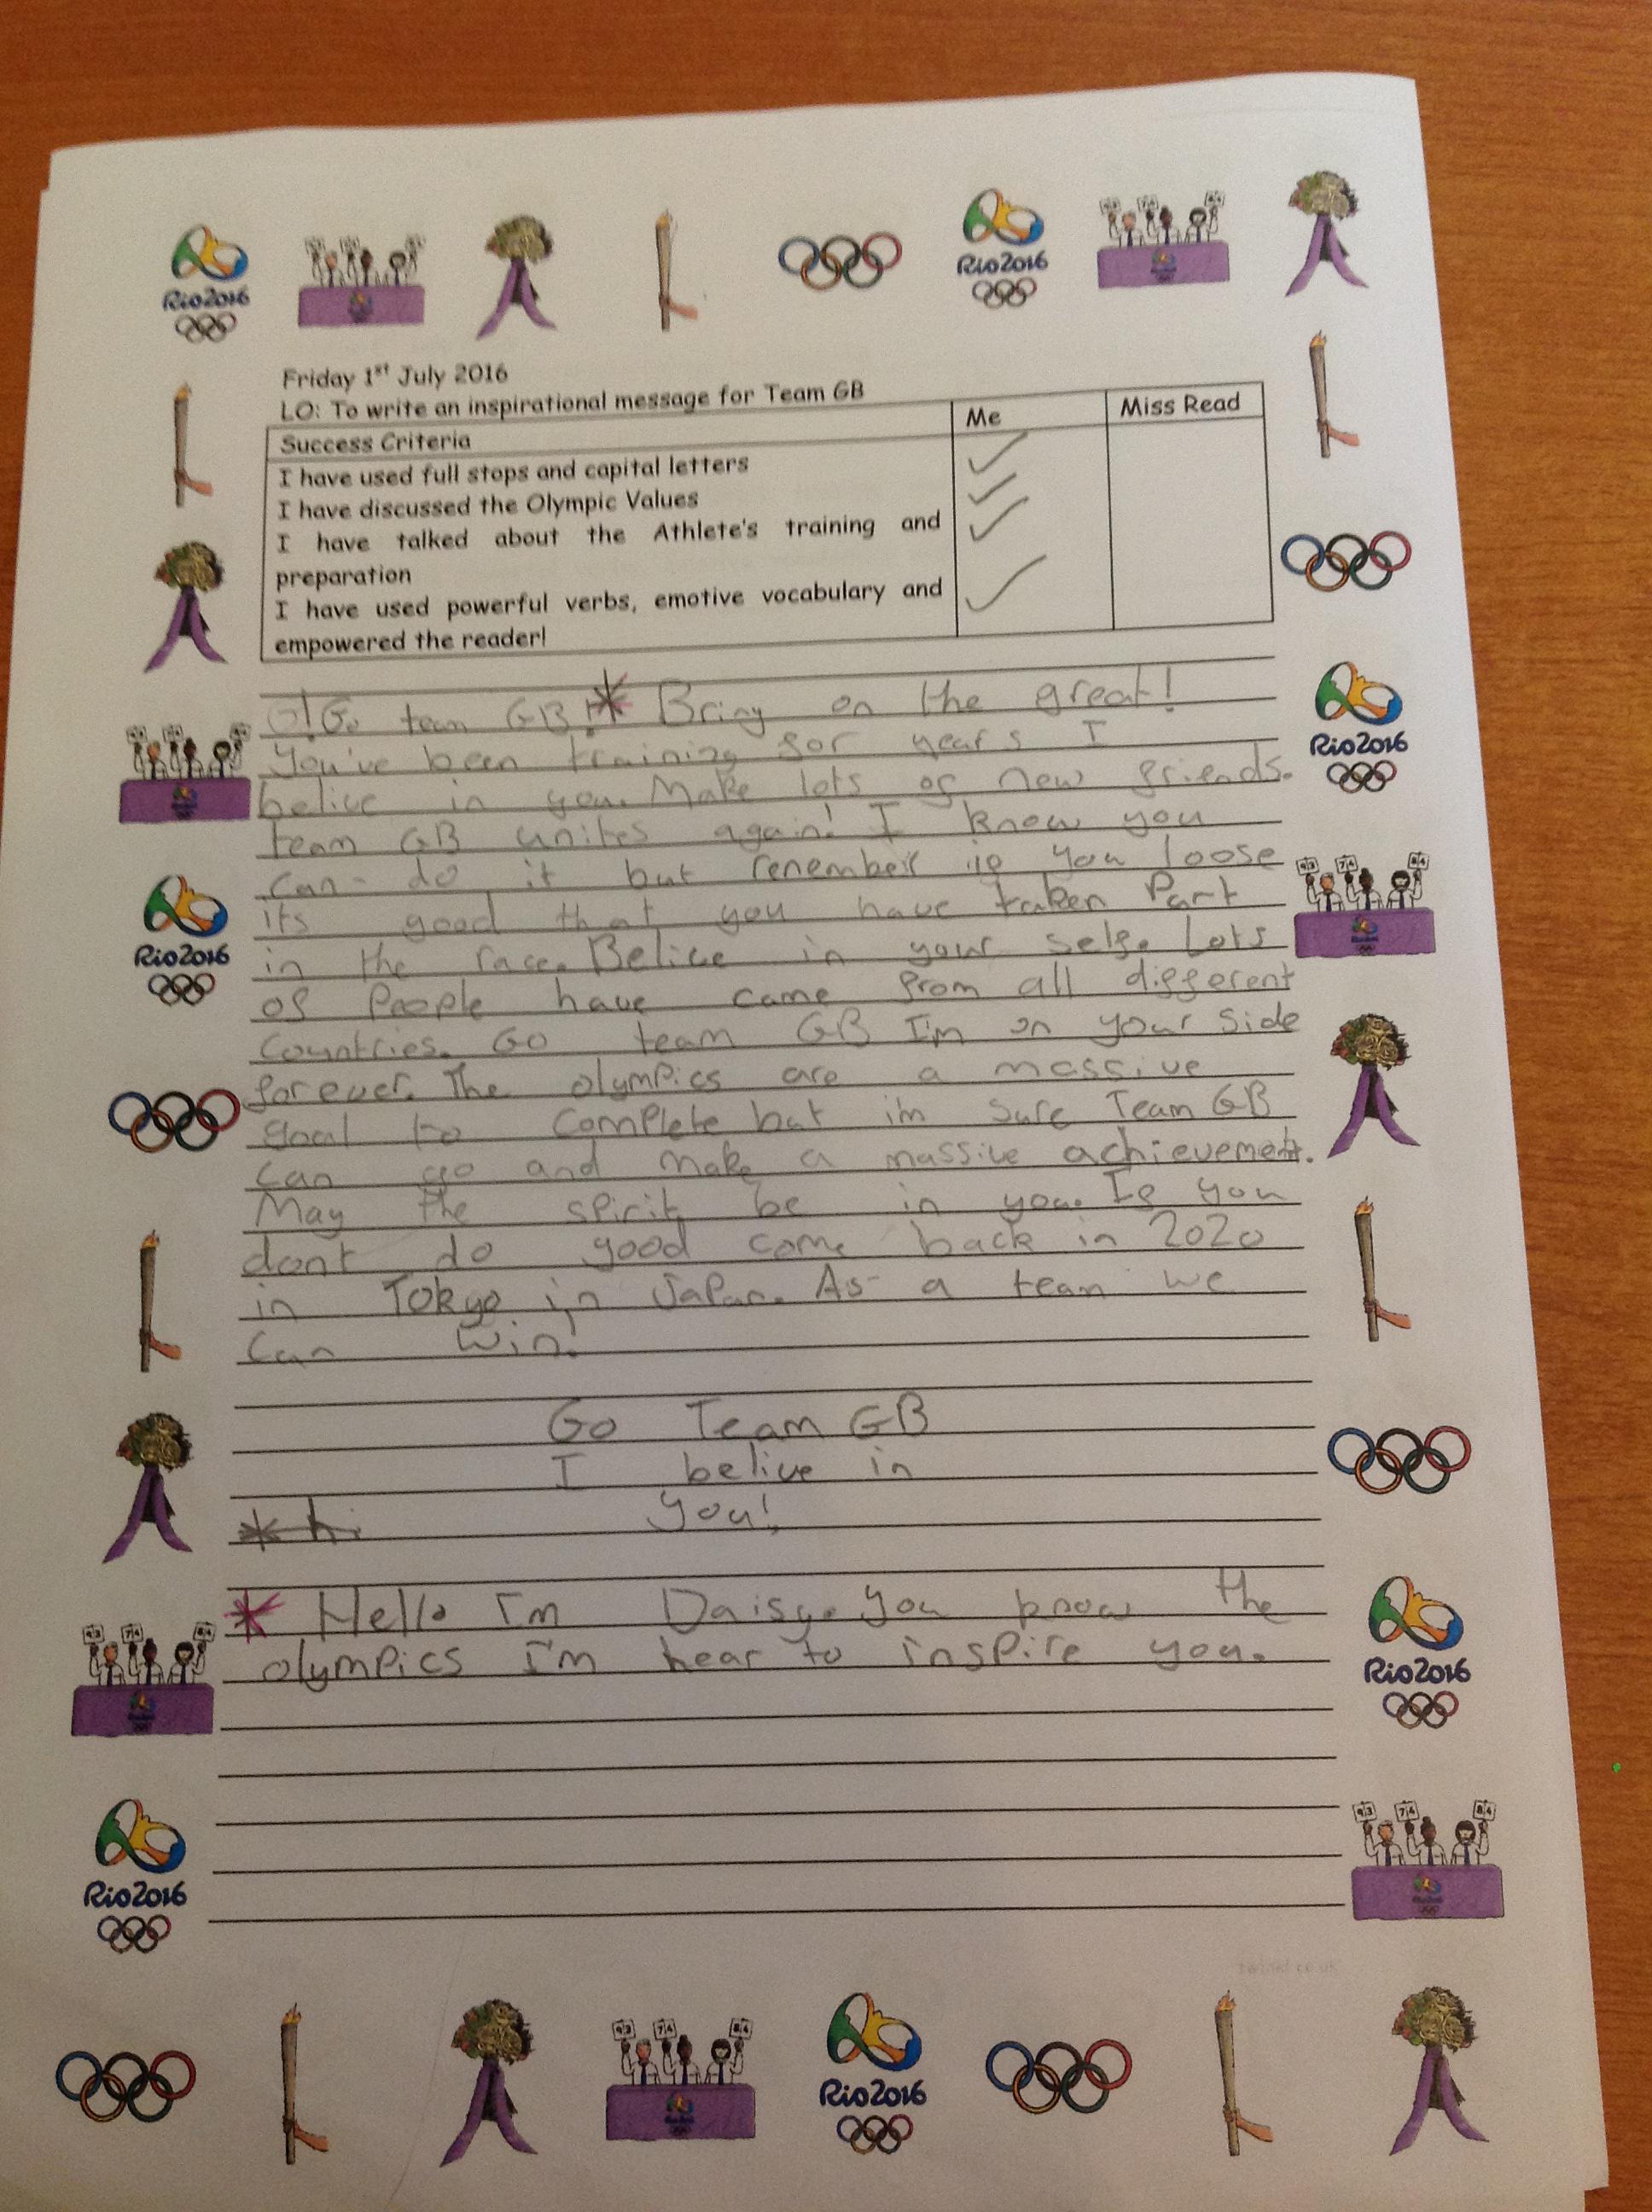 Rio2016
Rio2016
Friday 1st July 2016
LO: To write an inspirational message for Team GB
Success Criteria Me Miss Read
I have used full stops and capital letters
I have discussed the Olympic Values
I have talked about the Athlete's training and
preparation
I have used powerful verbs, emotive vocabulary and
empowered the reader!
Go team GB!* Bring on the great!
You've been training for years I
belive in you. Make lots of new friends.
team GB unites again! I know you
can do it but remember if you loose
its good that you have taken Part
in the race. Belive in your self. Lots
of People have came from all different
Countries. Go team GB I'm on your side
forever. The olympics are a massive
goal to complete but i'm sure Team GB
can go and make a massive achievement.
May the spirit be in you. If you
dont do good come back in 2020
in Tokyo in Japan. As a team we
can win!
Go Team GB
I belive in
you!
* hi
* Hello I'm Daisy. You know the
olympics I'm hear to inspire you.
Rio2016
Rio2016
Rio2016
Rio2016
Rio2016